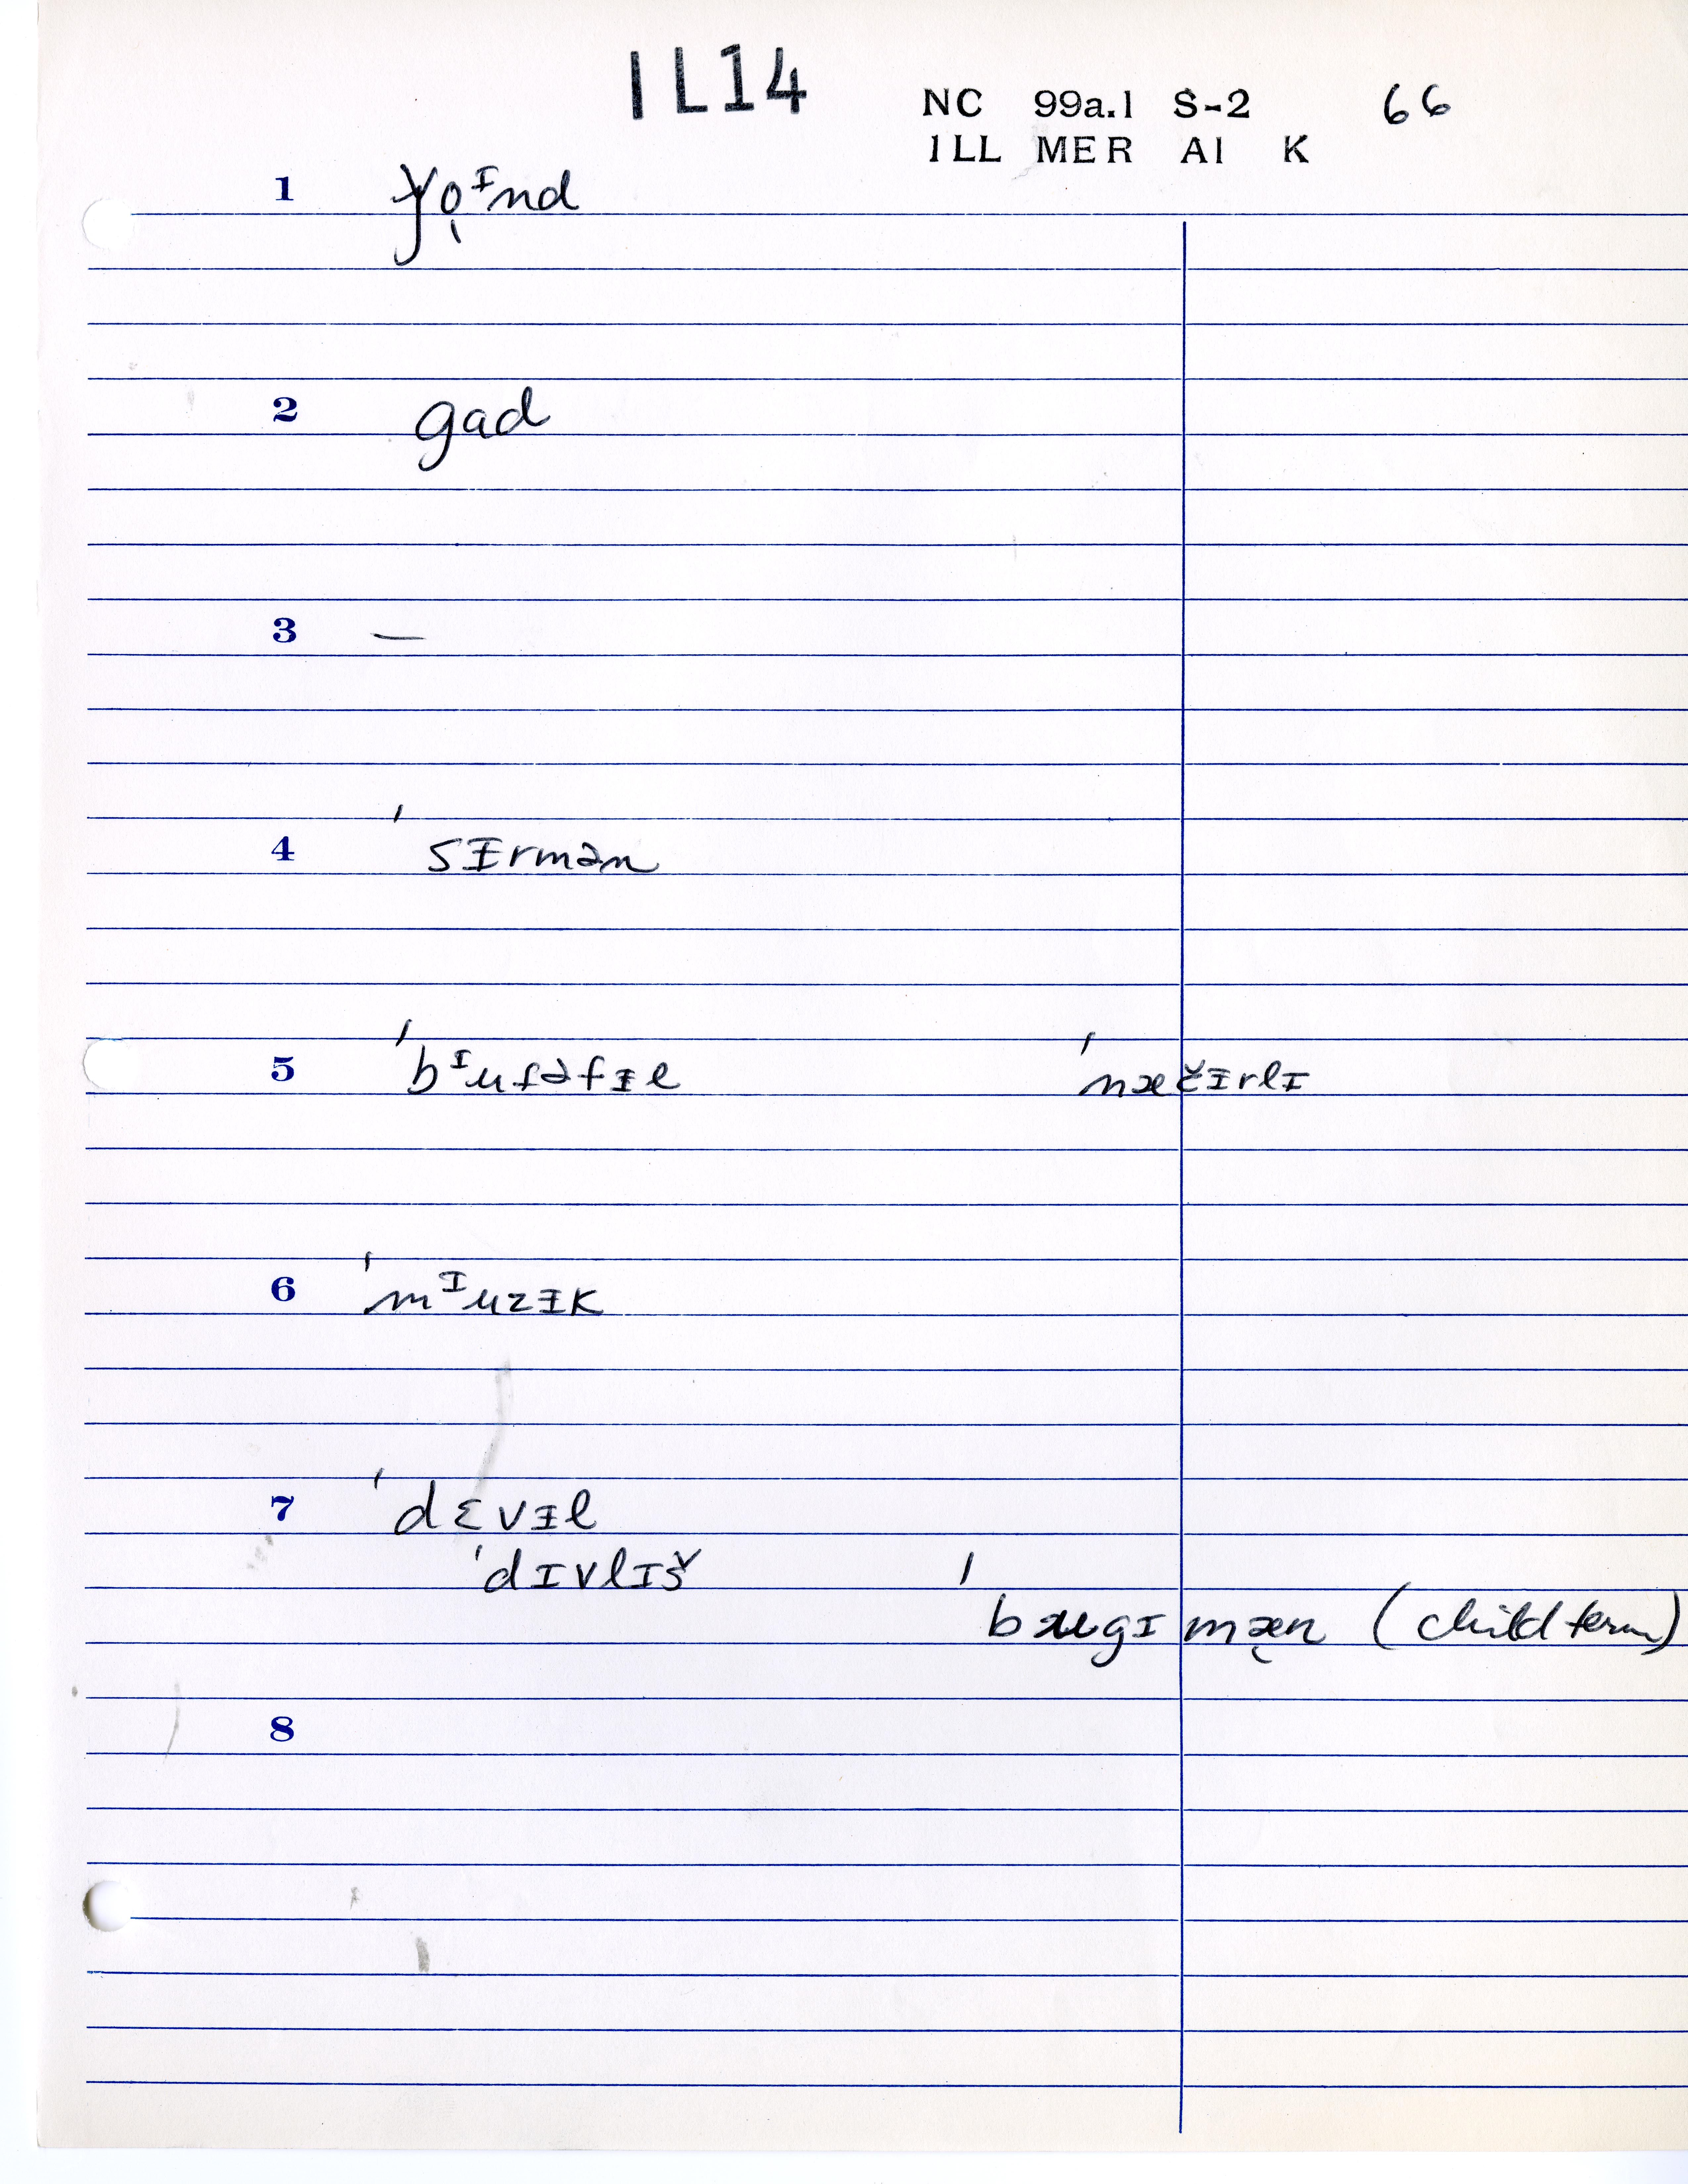 IL14
NC 99a.1 S-2 66
ILL MER A1 K
1 ǰọᶦnd
2 gad
3 —
4 ˈsɪrmən
5 ˈbᶦufəfɨl ˈnæčɨrlɪ
6 ˈmᶦuzɨk
7 ˈdɛvɨl
ˈdɪvlɪš
ˈbʊgɪ mæ̨n (child term)
8